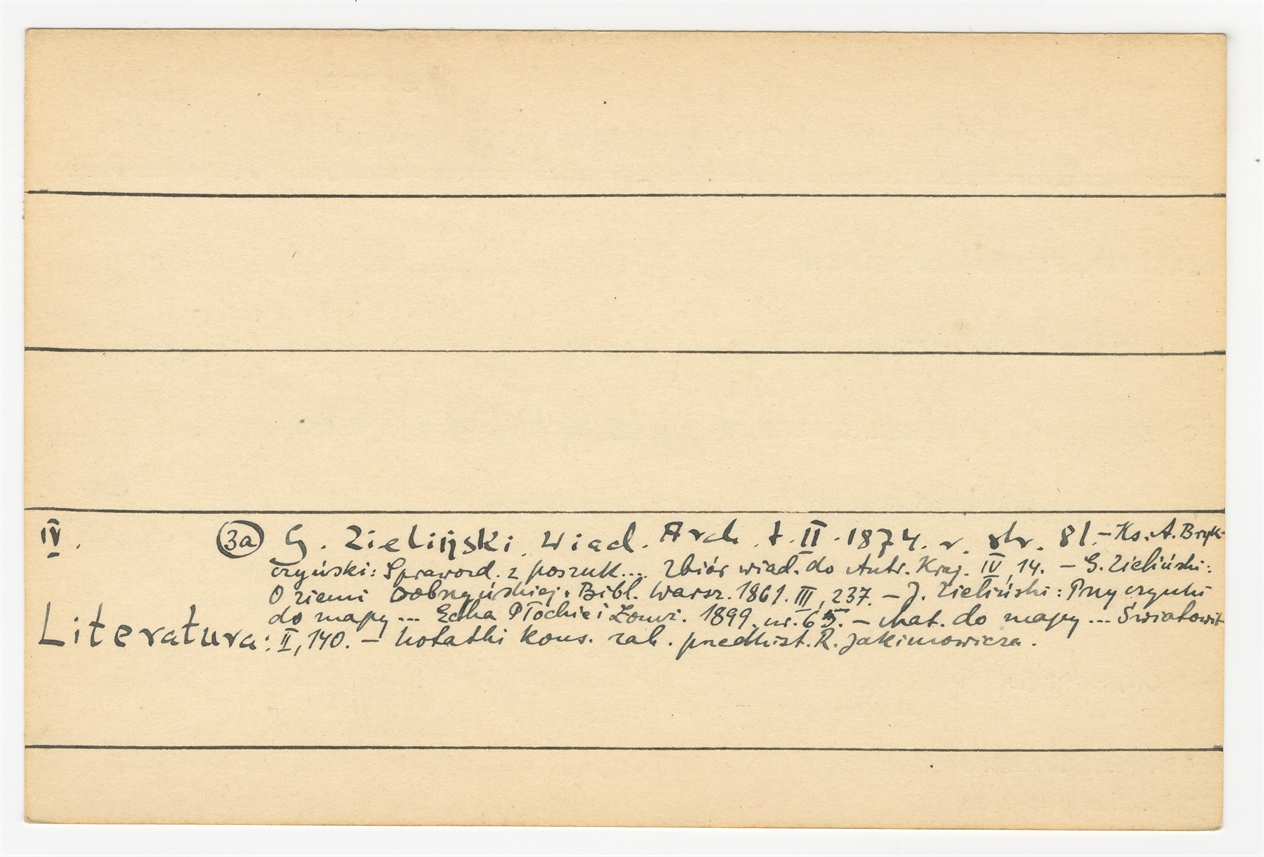 IV.
3a G. Zieliński. Wiad. Arch. t. II. 1874. r. str. 81. – Ks. A. Bryk-
czyński: Sprawozd. z poszuk... Zbiór wiad. do Antr. Kraj. IV 14. – G. Zieliński:
O ziemi Dobrzyńskiej. Bibl. Warsz. 1861. III, 237. – J. Zieliński: Przyczynki
do mapy... Echa Płockie i Łomż. 1899. nr. 65. – Mat. do mapy... Światowit
Literatura: II, 140. – Notatki kons. zab. przedhist. R. Jakimowicza.